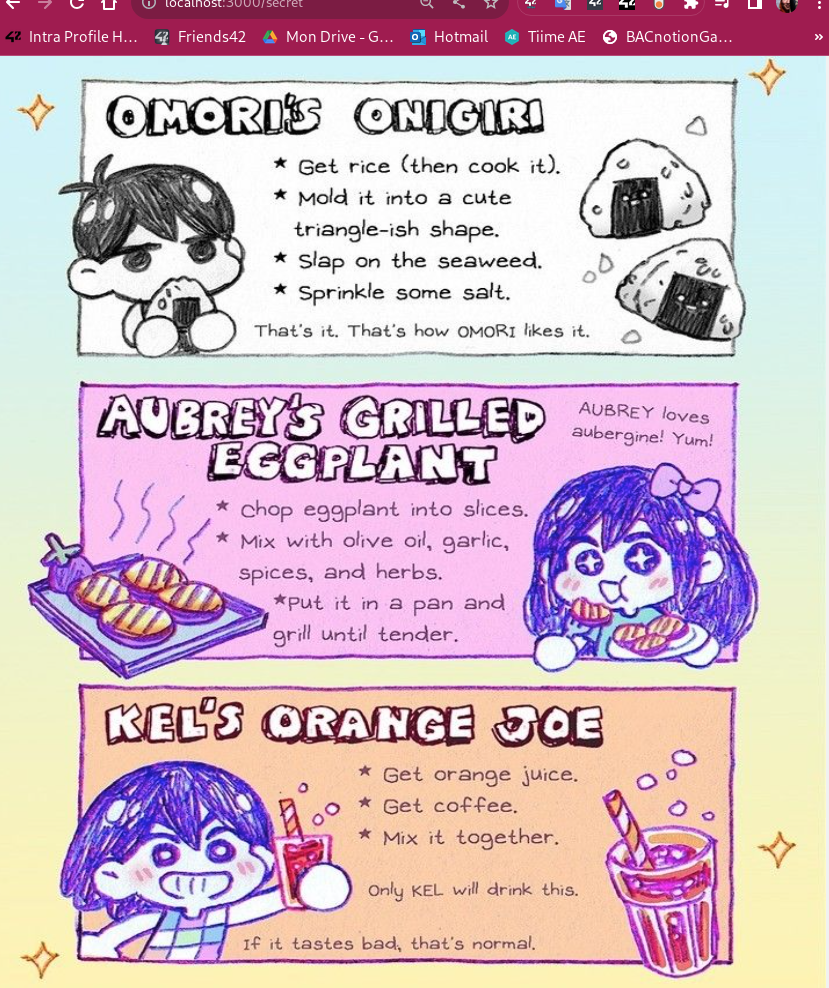 localhost:3000/secret
Intra Profile H… Friends42 Mon Drive - G… Hotmail Tiime AE BACnotionGa… »
OMORI'S ONIGIRI
★ Get rice (then cook it).
★ Mold it into a cute
triangle-ish shape.
★ Slap on the seaweed.
★ Sprinkle some salt.
That's it. That's how OMORI likes it.
AUBREY'S GRILLED
EGGPLANT
AUBREY loves
aubergine! Yum!
★ Chop eggplant into slices.
★ Mix with olive oil, garlic,
spices, and herbs.
★Put it in a pan and
grill until tender.
KEL'S ORANGE JOE
★ Get orange juice.
★ Get coffee.
★ Mix it together.
Only KEL will drink this.
If it tastes bad, that's normal.